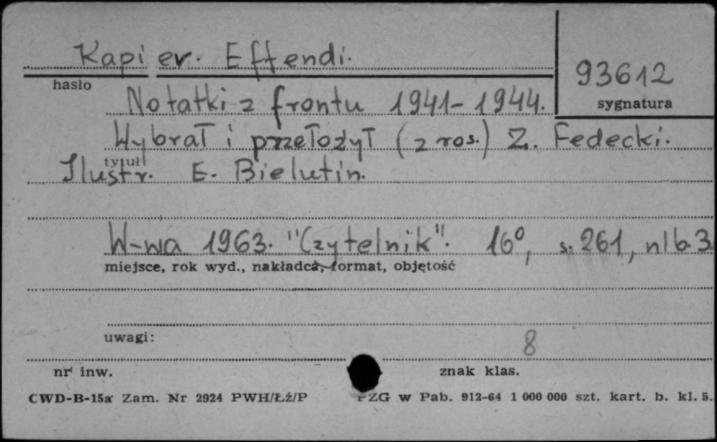 Kapiev. Effendi.
hasło
93612
sygnatura
Notatki z frontu 1941-1944.
Wybrał i przełożył (z ros.) Z. Fedecki.
tytuł
Ilustr. E. Bielutin.
W-wa 1963. "Czytelnik". 16°, s. 261, nlb 3
miejsce, rok wyd., nakładca, format, objętość
uwagi:
8
nr inw.
znak klas.
CWD-B-15a Zam. Nr 2924 PWH/Łż/P
PZG w Pab. 912-64 1 000 000 szt. kart. b. kl. 5.